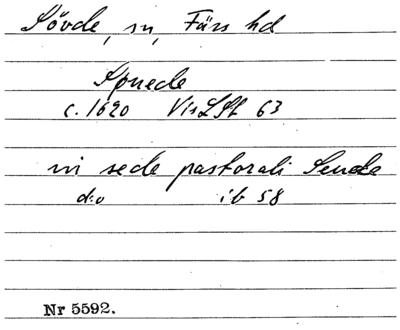 Sövde, sn, Färs hd
Spuede
c. 1620 VisLSt 63
in sede pastorali Seuede
d:o ib 58
Nr 5592.